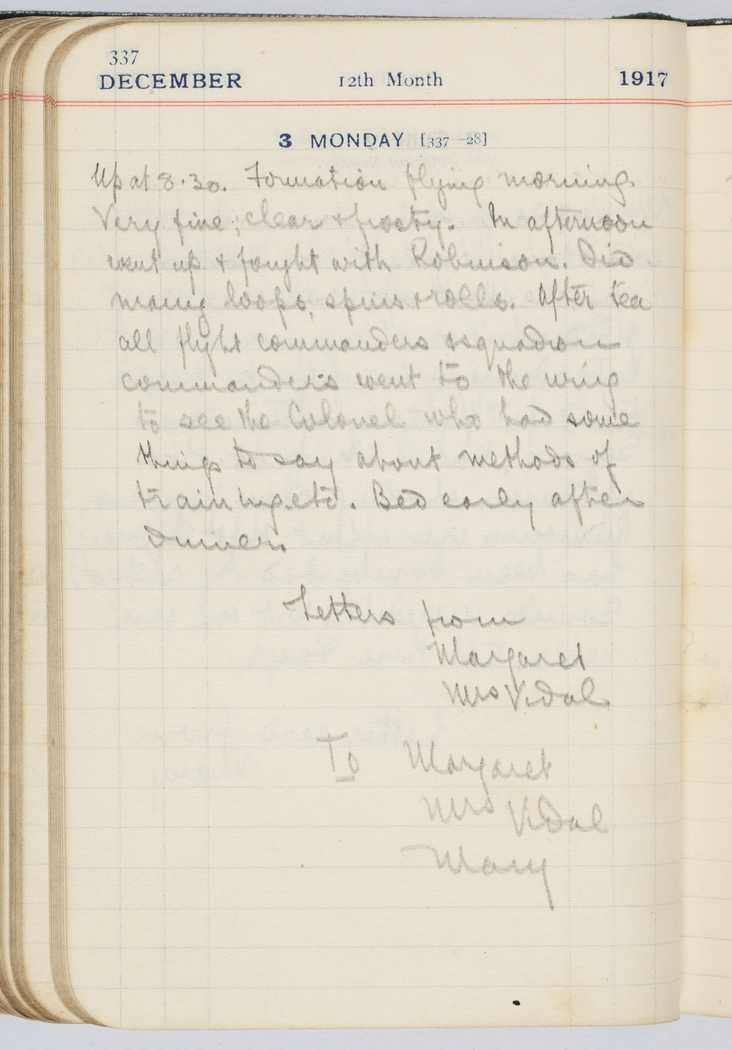 337
DECEMBER 12th Month 1917
3 MONDAY [337—28]
Up at 8.30. Formation flying morning.
Very fine, clear & frosty. In afternoon
went up & fought with Robinson. Did
many loops, spins & rolls. After tea
all flight commanders & squadron
commanders went to the wing
to see the Colonel who had some
things to say about methods of
training etc. Bed early after
dinner.
Letters from
Margaret
Mrs Vidal
To Margaret
Mrs Vidal
Mary